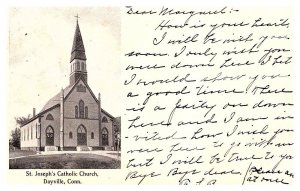 St. Joseph's Catholic Church,
Dayville, Conn.
Dear Margaret:-
How is your heart,
I will be with you
soon I only wish you
were down here I bet
I would show you a
a good time. There
is a party on down
here and I am in
vited how I wish you
were here to go with me
but I will be true to you
Bye Bye dear,
(Please ans
at once